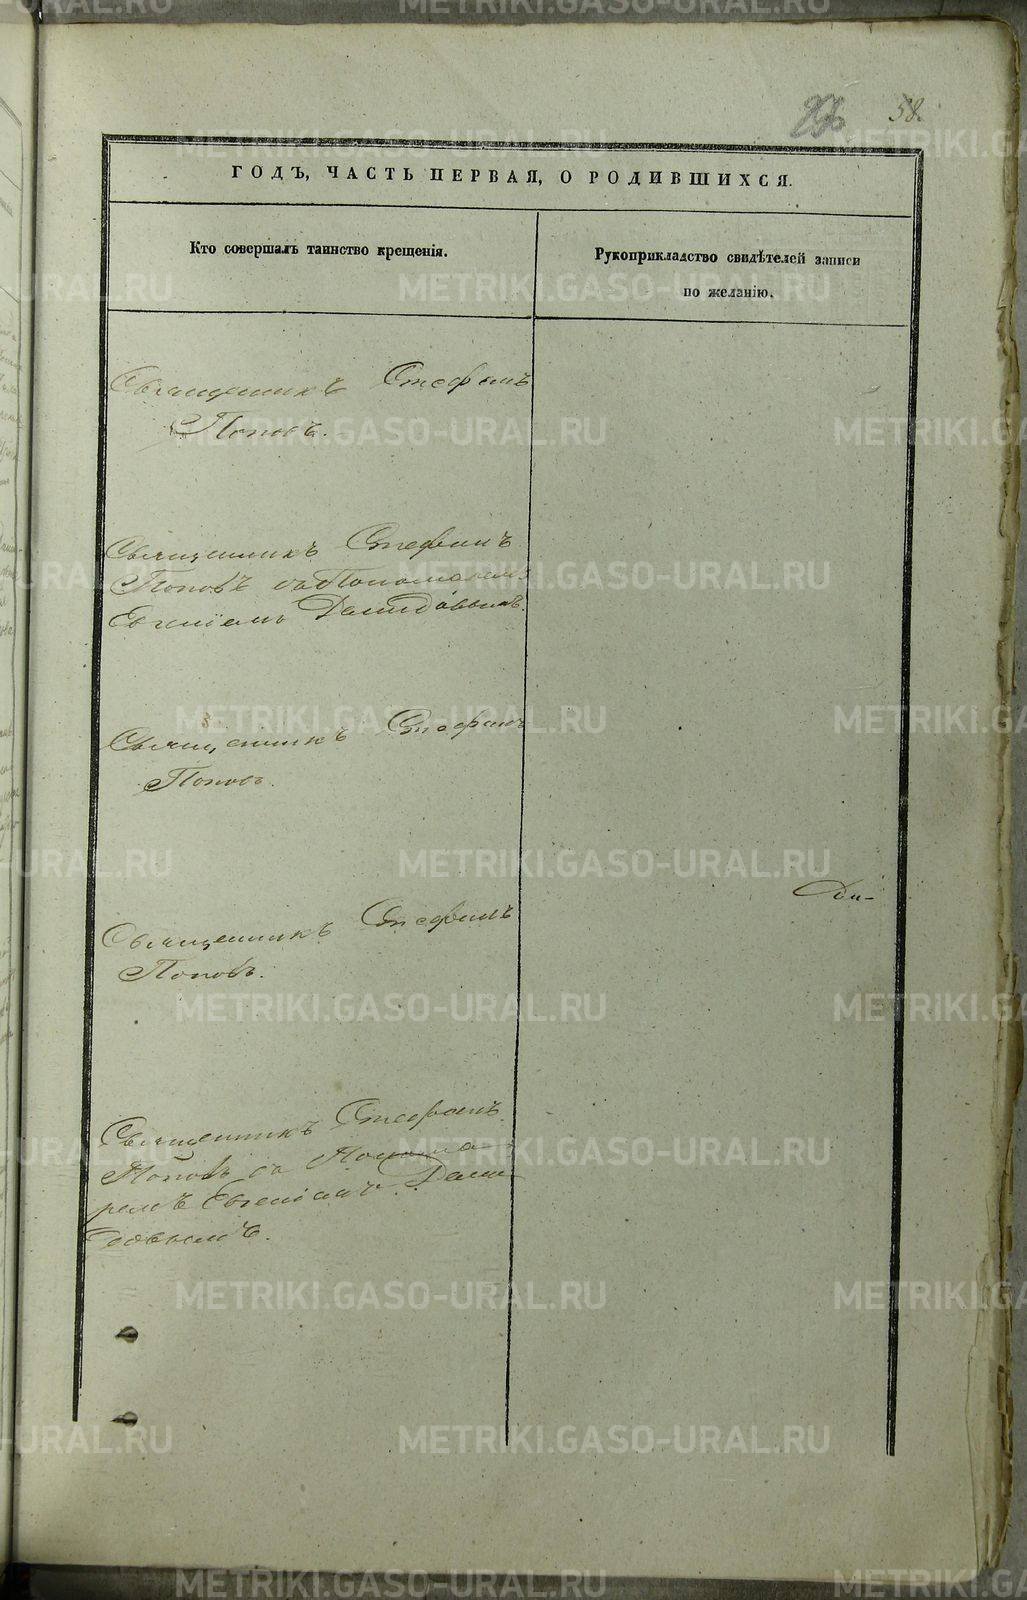 58.
ГОДЪ, ЧАСТЬ ПЕРВАЯ, О РОДИВШИХСЯ.
Кто совершалъ таинство крещенія.
Рукоприкладство свидѣтелей записи
по желанію.
Священникъ Стефанъ
Поповъ.
Священникъ Стефанъ
Поповъ съ Пономаремъ
Евгеніемъ Демидовымъ.
Священникъ Стефанъ
Поповъ.
Священникъ Стефанъ
Поповъ.
Священникъ Стефанъ
Поповъ съ Понома-
ремъ Евгеніемъ Деми-
довымъ.
METRIKI.GASO-URAL.RU